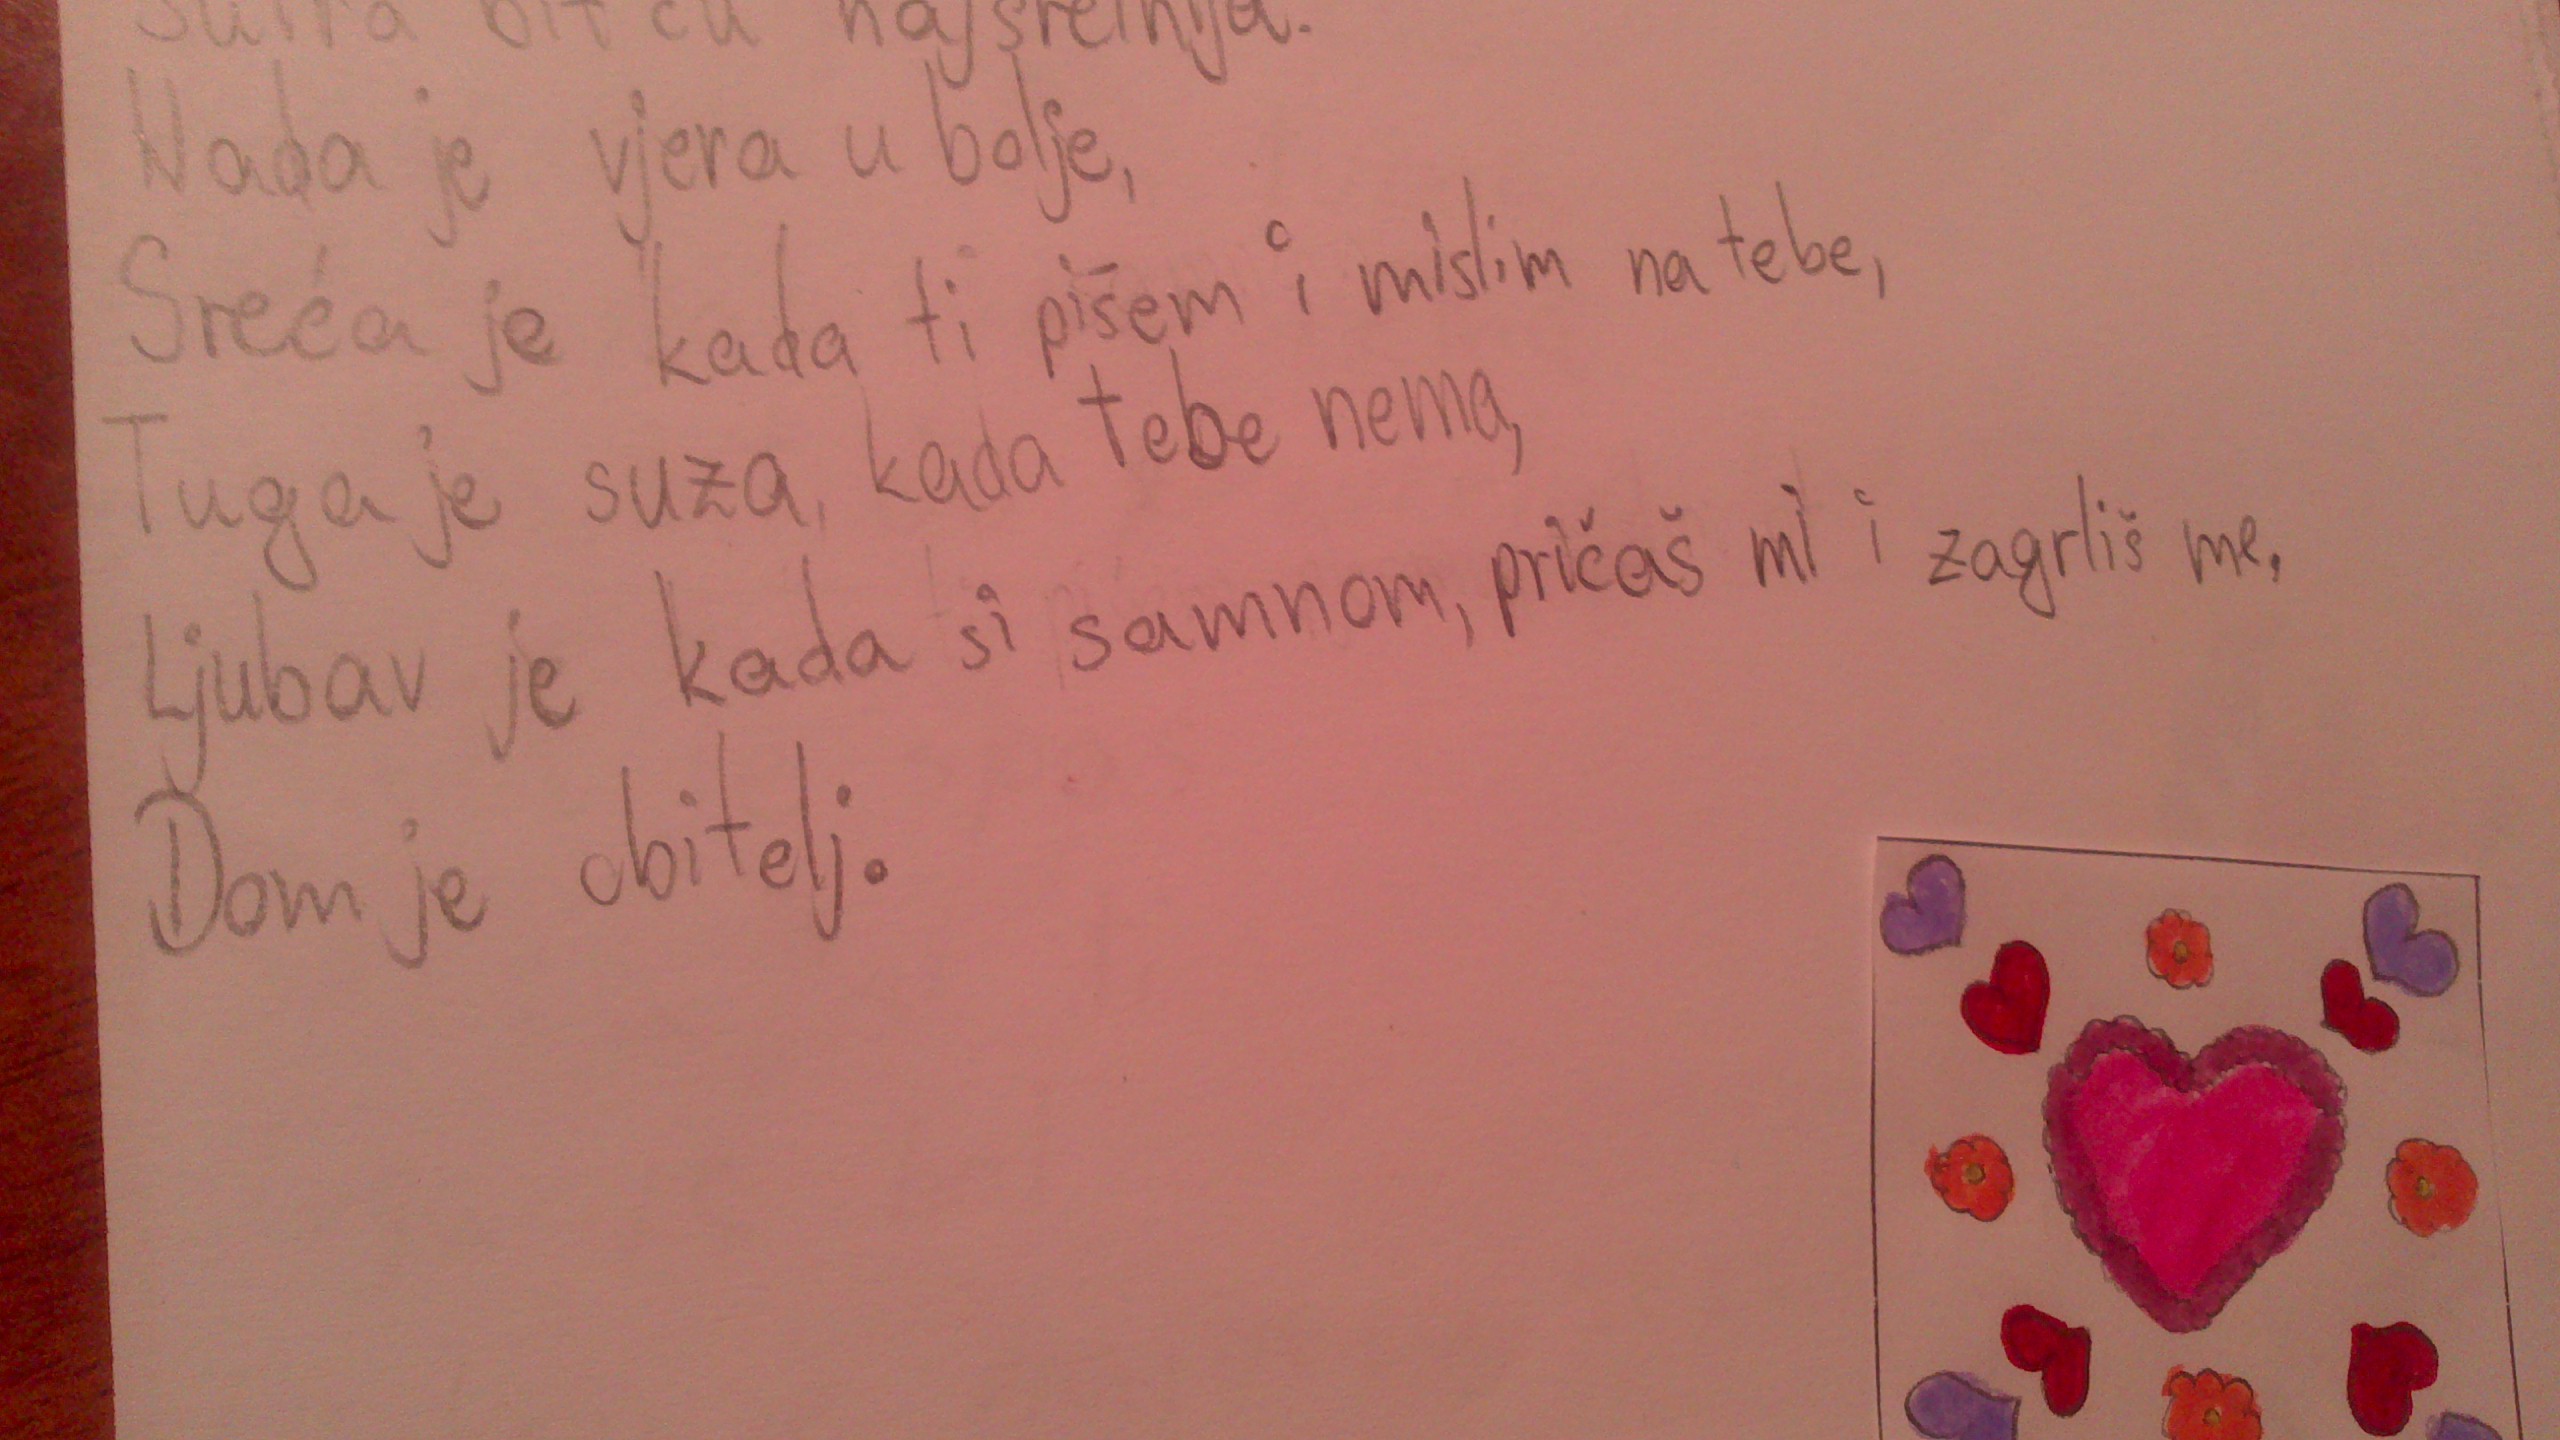 Sutra bit ću najsretnija.
Nada je vjera u bolje,
Sreća je kada ti pišem i mislim na tebe,
Tuga je suza, kada tebe nema,
Ljubav je kada si samnom, pričaš mi i zagrliš me.
Dom je obitelj.